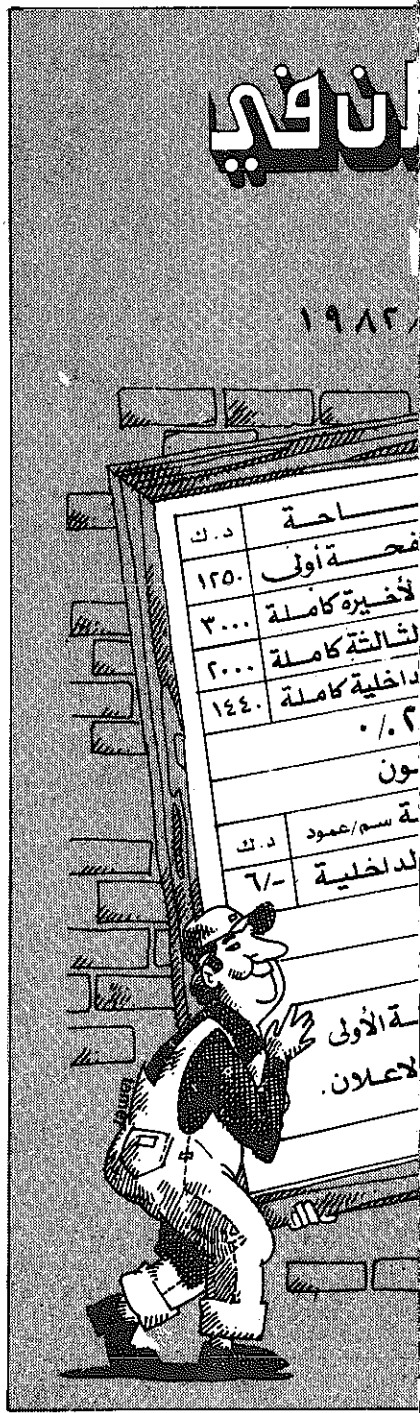 ن في
١٩٨٢/
ـــاحة د.ك
فحـــة أولى ١٢٥٠
لأخيرة كاملة ٣٠٠٠
لثالثة كاملة ٢٠٠٠
داخلية كاملة ١٤٤٠
ون
ة سم/عمود د.ك
لداخلية ٦/-
ـة الأولى
لاعلان.